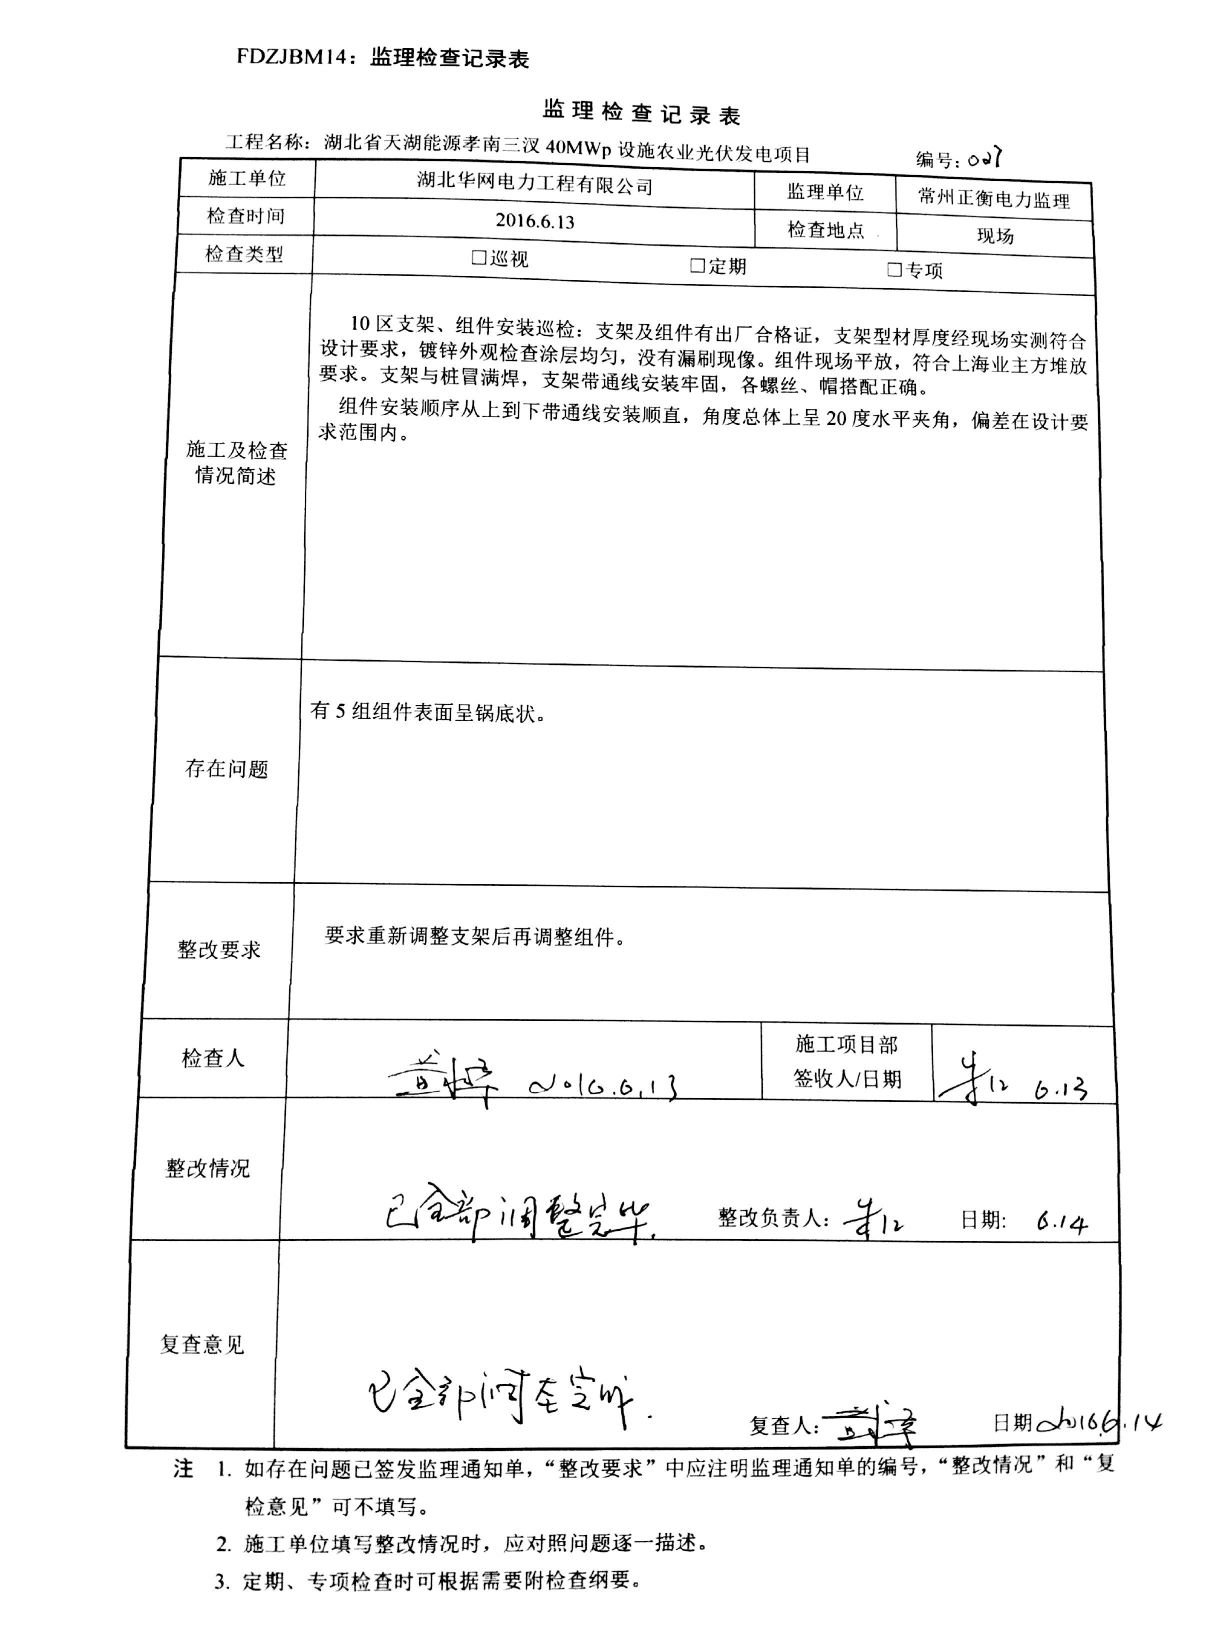 FDZJBM14：监理检查记录表
监理检查记录表
工程名称：湖北省天湖能源孝南三汊 40MWp 设施农业光伏发电项目 编号：027
施工单位 湖北华网电力工程有限公司 监理单位 常州正衡电力监理
检查时间 2016.6.13 检查地点 现场
检查类型 □巡视 □定期 □专项
10 区支架、组件安装巡检：支架及组件有出厂合格证，支架型材厚度经现场实测符合
设计要求，镀锌外观检查涂层均匀，没有漏刷现像。组件现场平放，符合上海业主方堆放
要求。支架与桩冒满焊，支架带通线安装牢固，各螺丝、帽搭配正确。
组件安装顺序从上到下带通线安装顺直，角度总体上呈 20 度水平夹角，偏差在设计要
求范围内。
施工及检查
情况简述
有 5 组组件表面呈锅底状。
存在问题
整改要求 要求重新调整支架后再调整组件。
检查人 2016.6.13 施工项目部
签收人/日期 6.13
整改情况 已全部调整完毕. 整改负责人： 日期: 6.14
复查意见 已全部调整完毕.
复查人: 日期 2016.6.14
注 1. 如存在问题已签发监理通知单，“整改要求”中应注明监理通知单的编号，“整改情况”和“复
检意见”可不填写。
2. 施工单位填写整改情况时，应对照问题逐一描述。
3. 定期、专项检查时可根据需要附检查纲要。